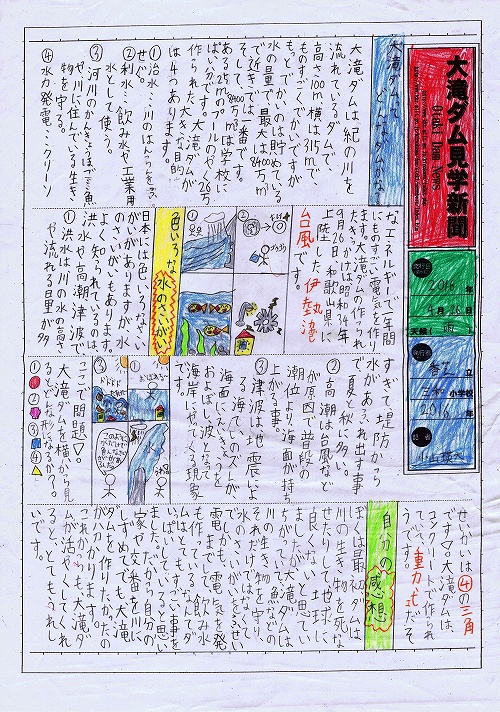 大滝ダム見学新聞
2016年
4月28日
天候(雨)
立
三和小学校
2016年
大滝ダムって
どんなダムかな?
大滝ダムは紀の川を
流れているダムで、
高さ100m横は315mで、
ものすごくでかいですが
もっとでかいのは貯めている
水の量で、最大は8400万㎥
で近きでは、一番です。
そして8400万㎥は学校に
ある25mのプールのやく26万
ばいぶんです。大滝ダムが
作られた大きな目的
は4つあります。
①治水…川のはんらんをふ
せぐ。
②利水…飲み水や工業用
水として使う。
③河川のかんきょうほご…魚
や川に住んでいる生き
物を守る。
④水力発電…クリーン
なエネルギーで一年間
にものすごい電気を作り
ます。大滝ダムの作られ
たきっかけは昭和34年
9月26日和歌山県に
上陸した伊勢湾
台風です。
色いろな水のさいがい
日本には色いろなさい
がいがありますが、水
のさいがいもあります。
よく知られているのは、
洪水や高潮津波で
す。
①洪水は川の水の高さ
や流れる日量が多
すぎて堤防から
水があふれ出す事
で夏と秋に多い。
②高潮は台風など
が原因で普段の
潮位より海面が持ち
上がる事。
③津波は地震によ
る海ていのズレが
海面にえいきょうを
およぼし波となって
海岸にやってくる現象
です。
ここで問題▽。
大滝ダムを横から見
るとどんな形になるか?
①
②
③
④
せいかいは④の三角
です▽。大滝ダムは、
コンクリートで作られ
ていて重力式だそ
うです。
自分の感想
ぼくは最初ダムは
川の生き物を死な
らしたりして地球に
良くないと思ってい
ましたが、大滝ダムは
ちがっていて魚などの
川の生き物を守り、
それだけではなくて、
水のさいがいをふせい
でしかも、電気を発
電するまでして飲み水
も作っているなんてダ
ムはとてもすごい事を
いっぱいしていると思い
ました。だから自分の
家や交番を川に
しずめてでも大滝
ダムを作りたかったの
が分かります。
これからも大滝ダ
ムが活やくしてくれ
ると、とてもうれし
いです。